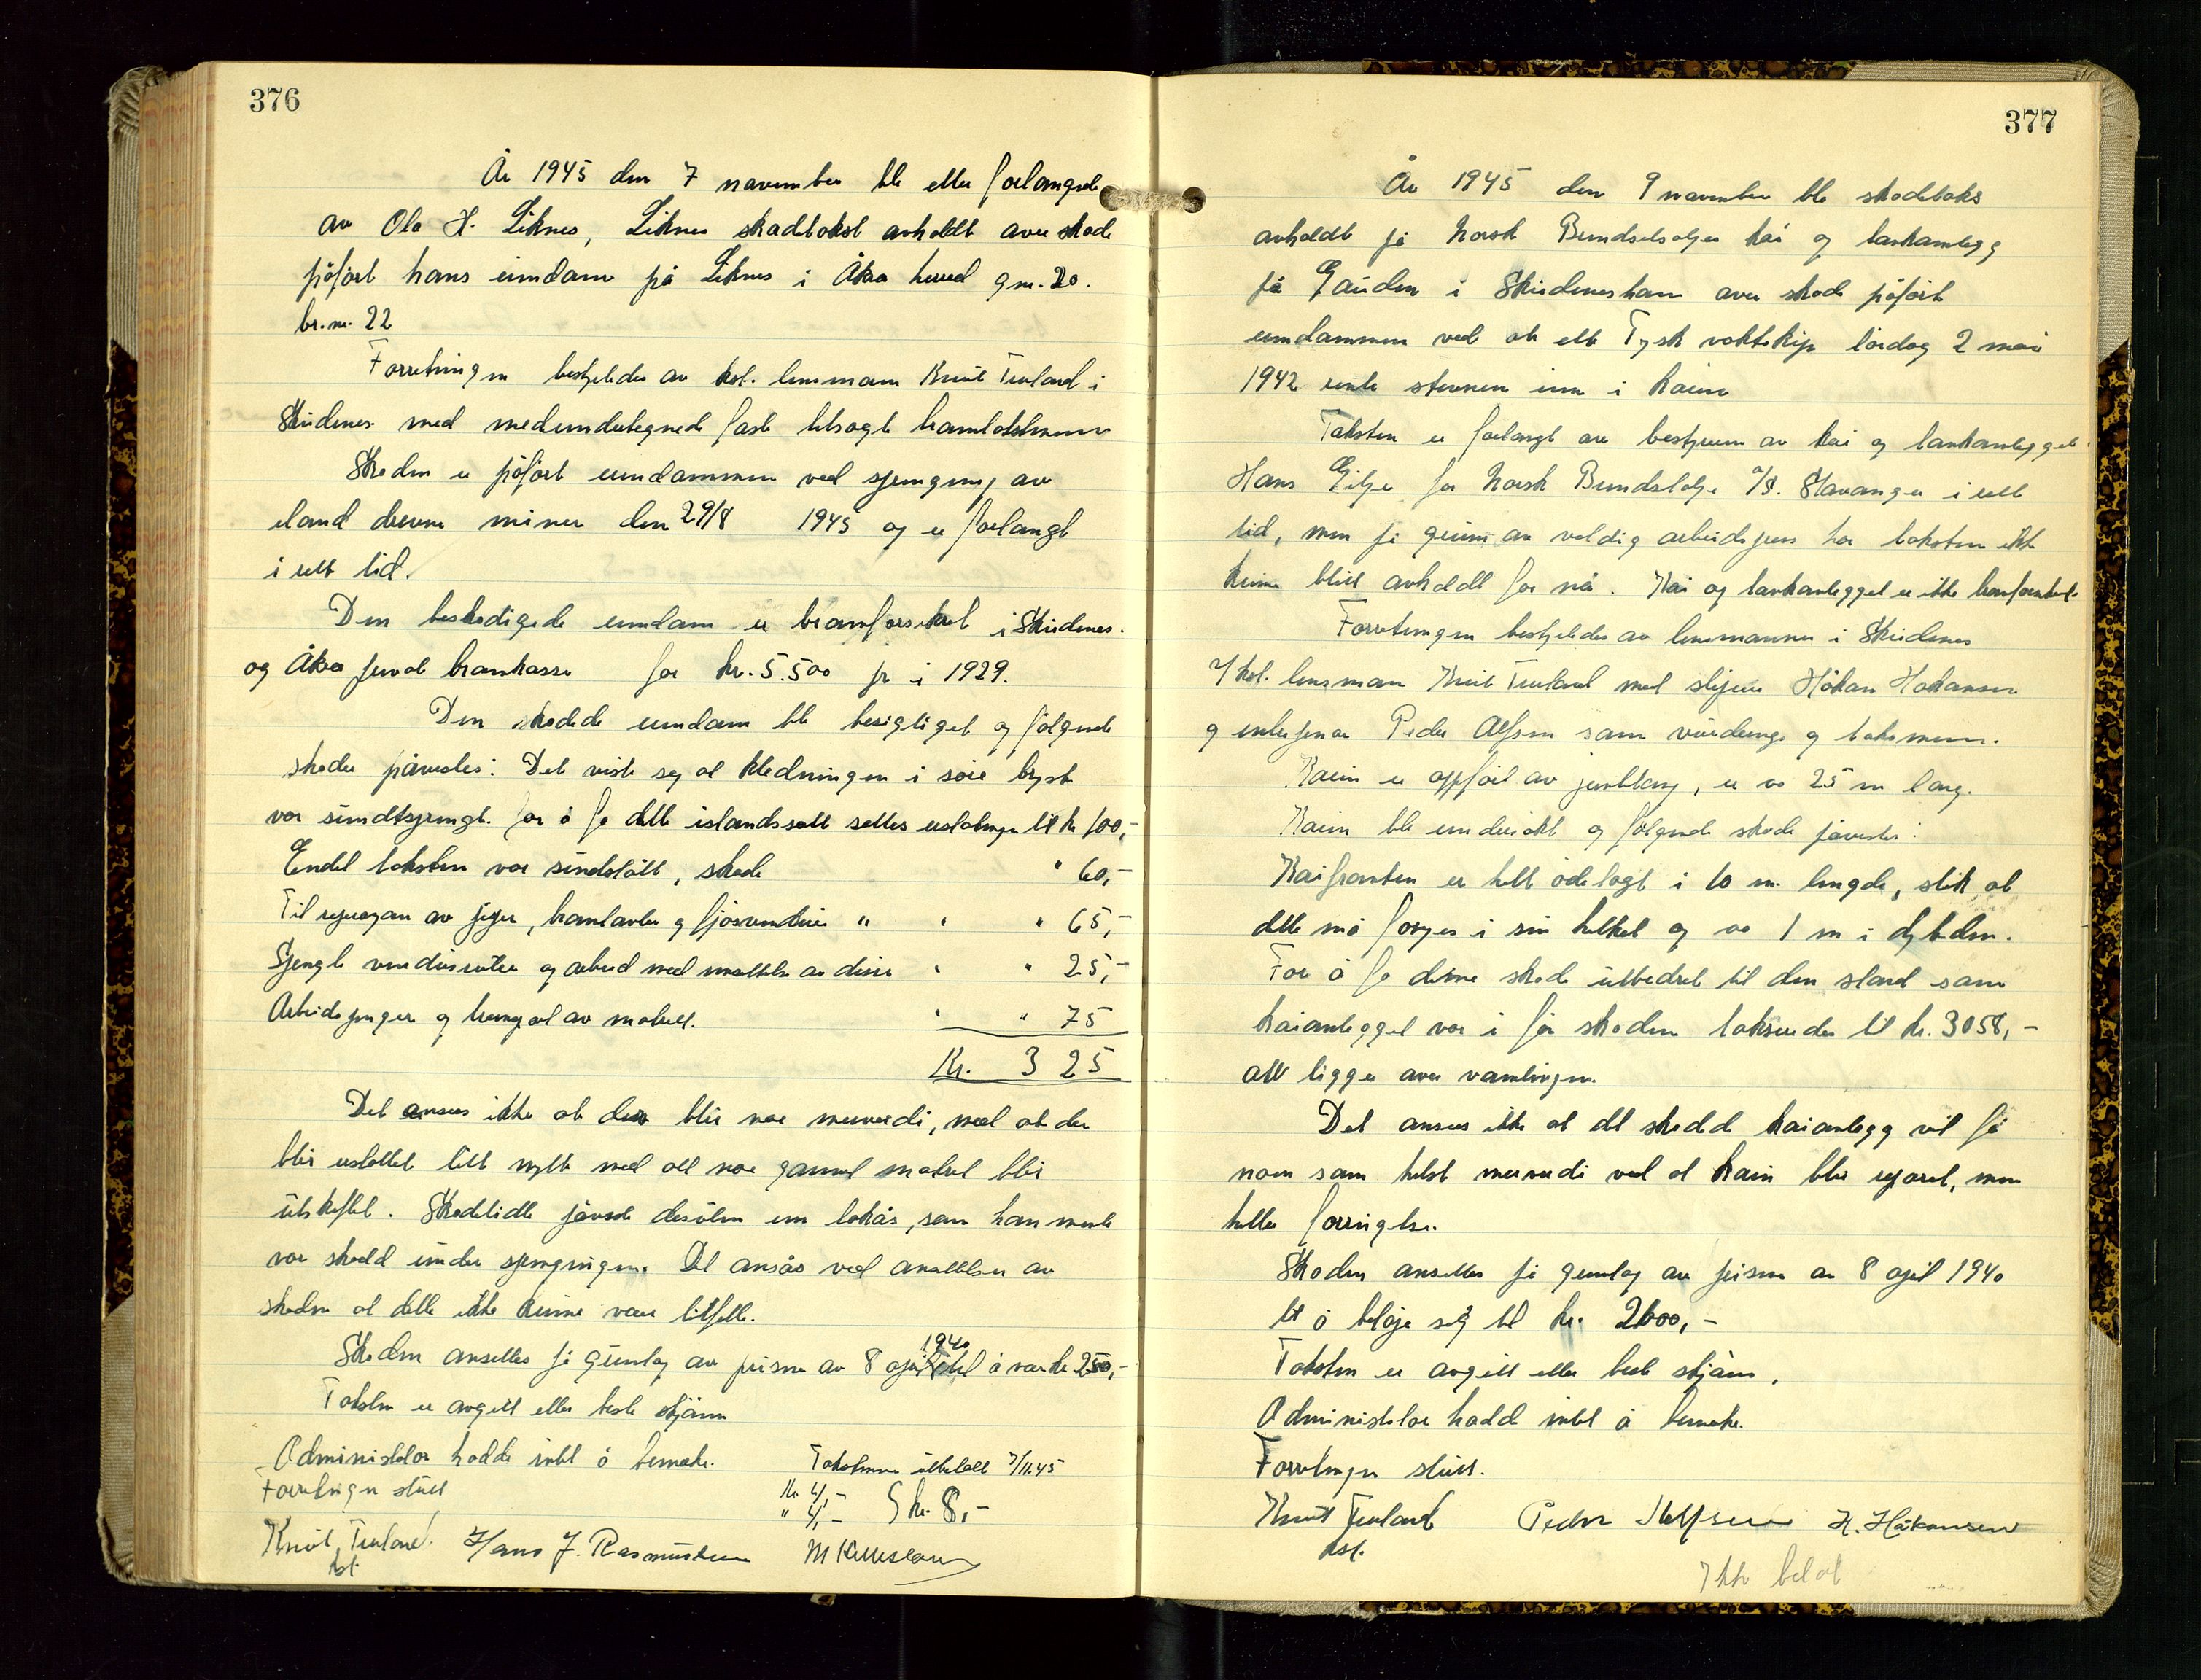 376
År 1945 den 7 november ble etter forlangende
av Ola H. Liknes, Liknes skadetakst avholdt over skade
påført hans eiendom på Liknes i Åkra herred gnr. 20.
br.nr. 22
Forretningen bestyrtes av kst. lensmann Knut Tveland i
Skudenes med medundertegnede faste tilsagte branntakstmenn
Skaden er påført eiendommen ved sprengning av
iland drevne miner den 29/8 1945 og er forlangt
i rett tid.
Den beskadigede eiendom er brannforsikret i Skudenes.
og Åkra private brannkasse for kr. 5.500 pr i 1929.
Den skadede eiendom ble besigtiget og følgende
skader påvistes: Det viste seg at kledningen i søre bryst
var sundtsprengt. for å få dette istandssatt settes erstatningen til kr 100,-
Endel taksten var sundslått, skade " 60,-
Til reparasjon av piper, brantavler og fjøsvinduer " " " 65,-
Sprengte vindusruter og arbeid med innsettelse av disse " " 25,-
Arbeidspenger og transport av materiell. " " 75
Kr. 325
Det ansees ikke at der blir noe merverdi, med at der
blir erstattet litt nytt med alt noe gammel materiel blir
utskiftet. Skadelidte påviste desuten en lokås, som han mente
var skadd under sprengningen. Det ansåes ved ansettelsen av
skaden at dette ikke kunne være tilfelle.
Skaden ansettes på grunnlag av prisene av 8 april 1940 til å være kr 250,-
Taksten er avgitt etter beste skjønn
Administrator hadde intet å bemerke. Takstmenn utbetalt 7/11.45
Forretningen slutt kr. 4,-
" 4,- } kr. 8,-
Knut Tveland. Hans J. Rasmussen M Killesland
kst.
377
År 1945 den 9 november ble skadetakst
avholdt på Norsk Brendselsoljes kai og tankanlegg
på Gaúden i Skudeneshavn over skade påført
eiendommen ved at ett Tysk vaktskip lördag 2 mai
1942 rente stevnen inn i kaien
Taksten er forlangt av bestyreren av kai og tankanlegget
Hans Gilje for Norsk Brendslolje A/S. Stavanger i rett
tid, men på grunn av veldig arbeidspress har taksten ikke
kunne blitt avholdt før nå. Kai og tankanlegget er ikke brannforsikret
Forretningen bestyrtes av lensmannen i Skudenes
v/kst. lensmann Knut Tveland med skipper Håkon Hakonsen
og enterprenør Peder Alfsen som vurderings og takstmenn.
Kaien er oppført av , er ca 25 m lang.
Kaien ble undersøkt og følgende skade påvistes:
Kaifronten er helt ødelagt i 10 m. lengde, slik at
dette må fornyes i sin helhet og ca 1 m i dybden.
For å få denne skade utbedret til den stand som
kaianlegget var i før skaden takseredes til kr. 3058,-
alt ligger over vannlinjen.
Det ansees ikke at det skadde kaianlegg vil få
noen som helst merverdi ved at kaien blir reparert, men
heller forringelse.
Skaden ansettes på grunnlag av prisene av 8 april 1940
til å beløpe seg til kr. 2600,-
Taksten er avgitt etter beste skjønn.
Administrator hadde intet å bemerke.
Forretningen slutt.
Knut Tveland Peder Alfsen H. Håkonsen
kst.
Ikke betalt